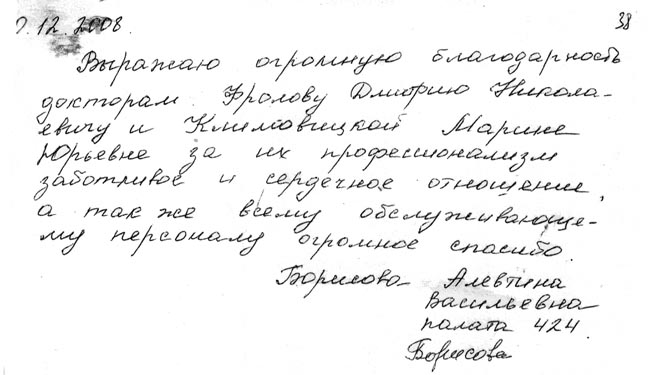 12.2008. 38
Выражаю огромную благодарность
докторам Фролову Дмитрию Никола-
евичу и Климовицкой Марине
Юрьевне за их профессионализм
заботливое и сердечное отношение,
а так же всему обслуживающе-
му персоналу огромное спасибо.
Борисова Алевтина
Васильевна
палата 424.
Борисова